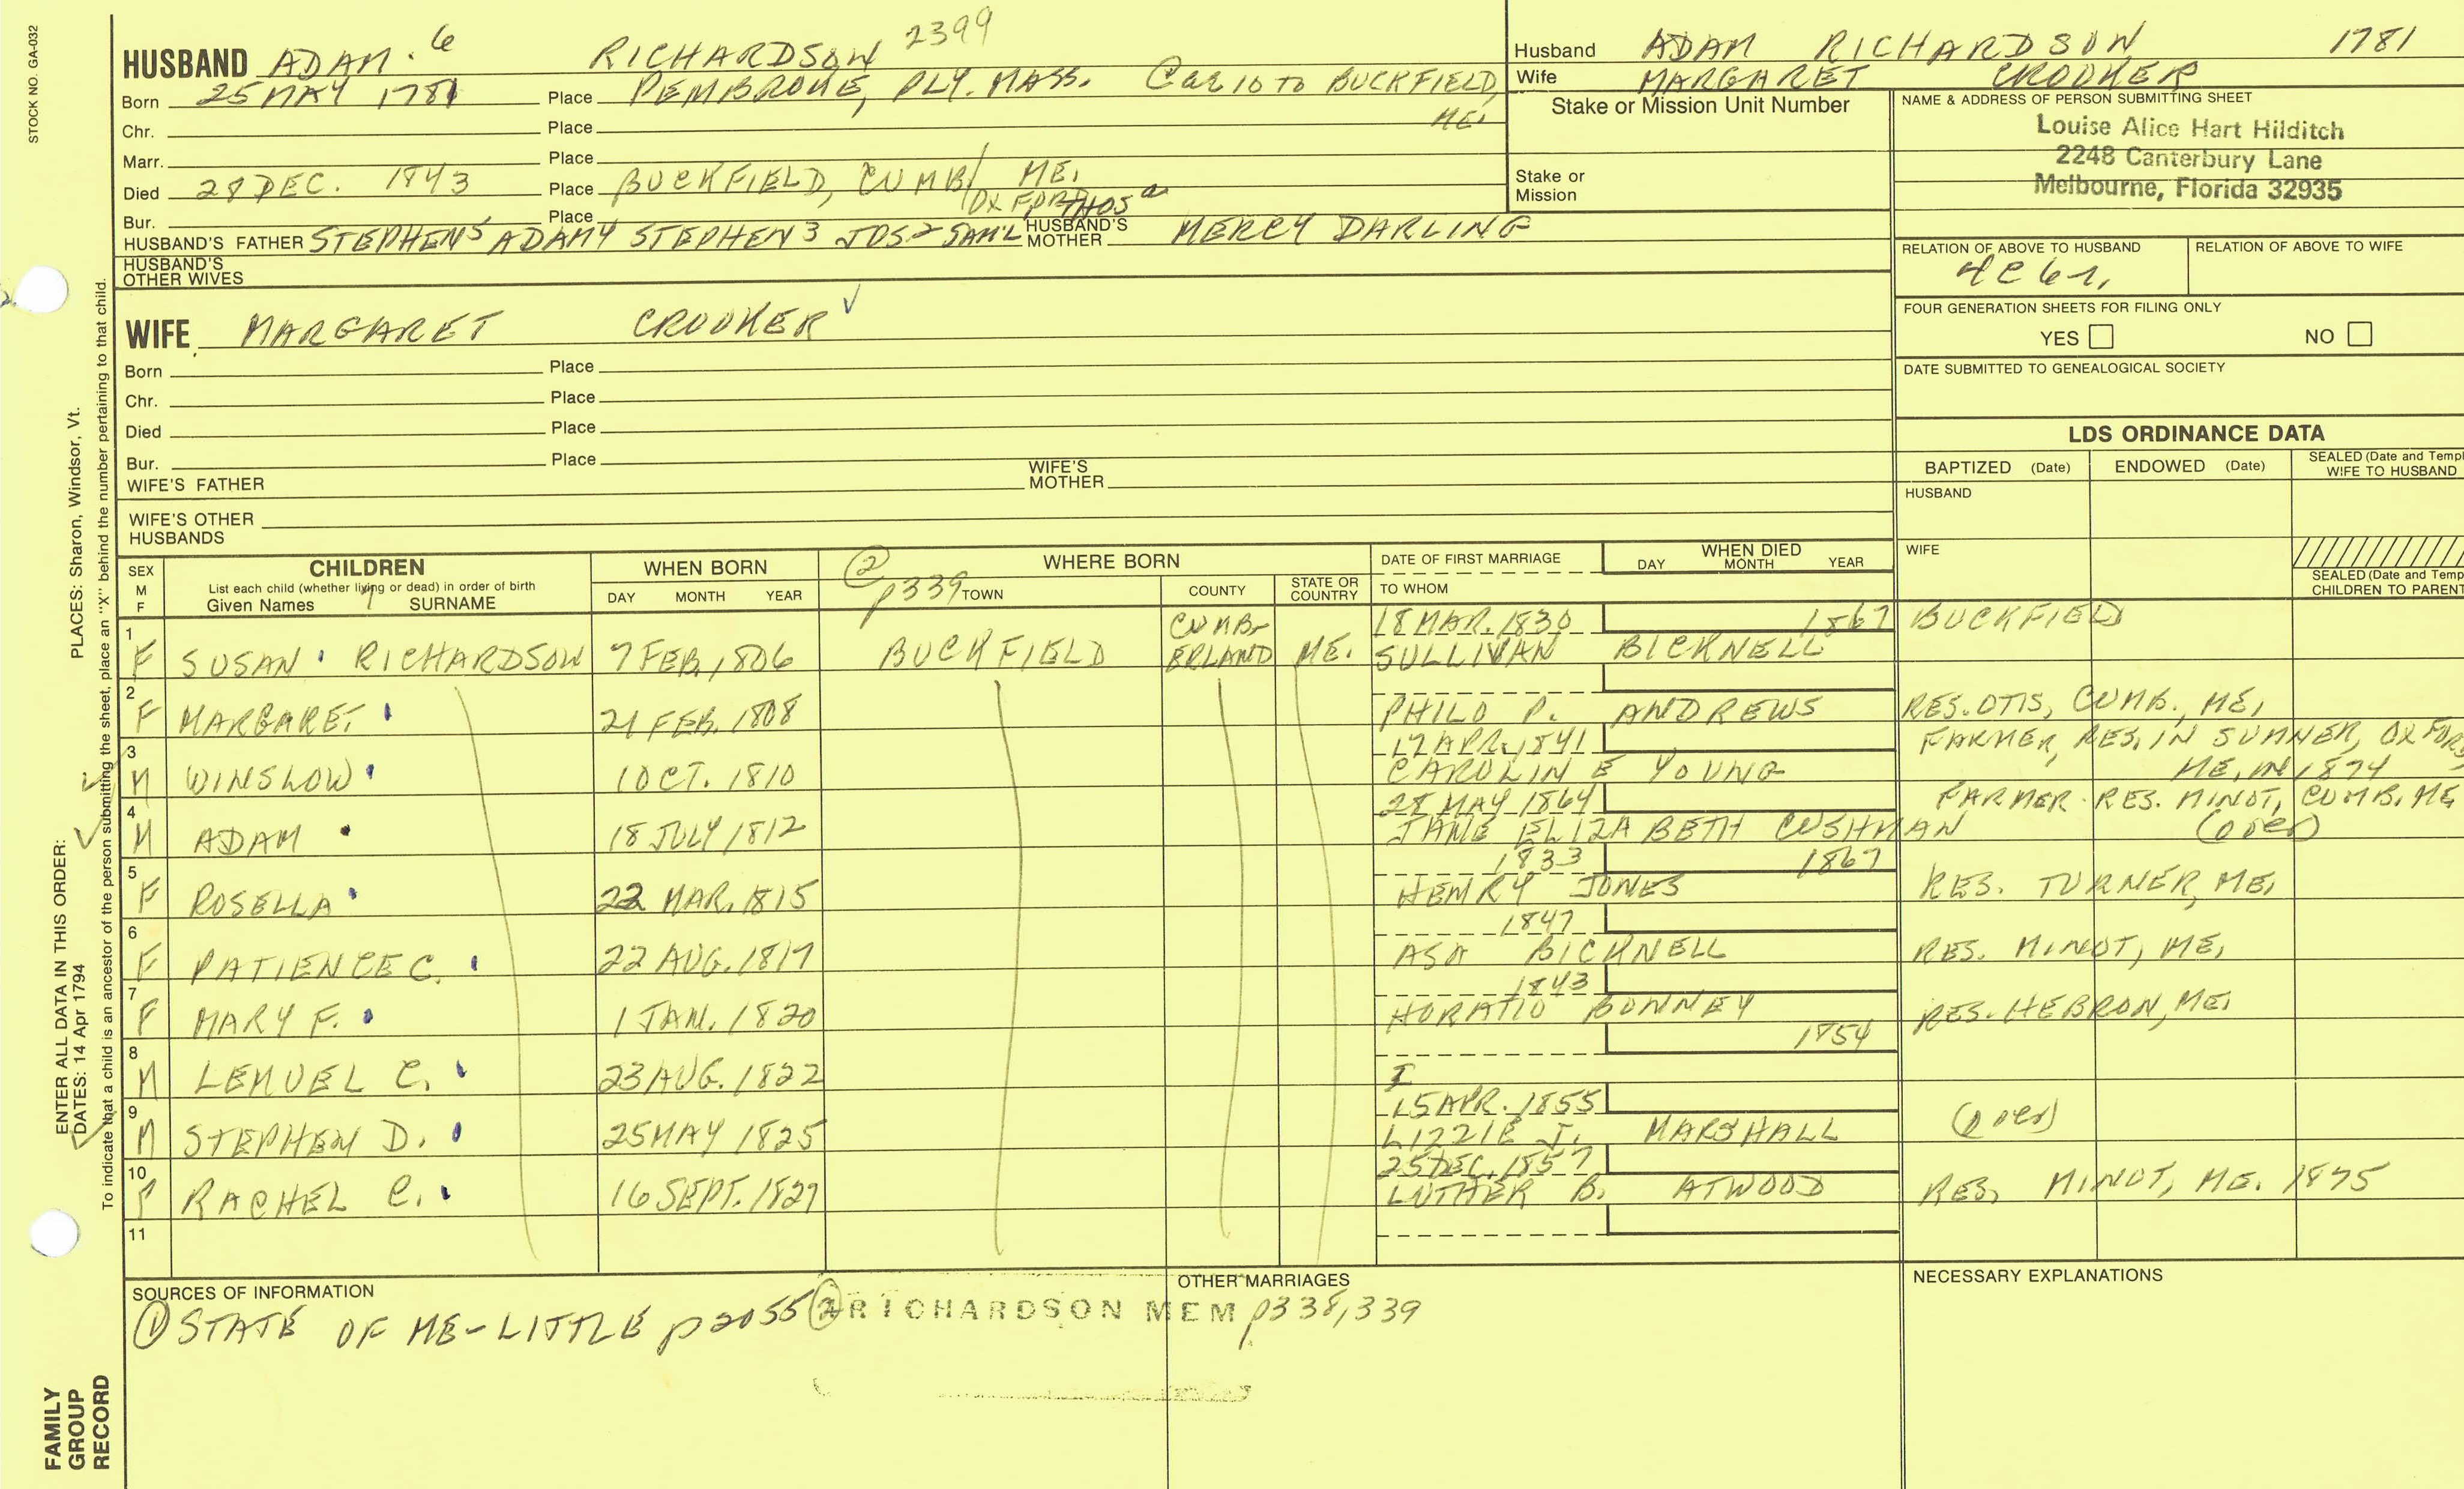 STOCK NO. GA-032
HUSBAND ADAM 6 RICHARDSON 2399
Born 25 MAY 1781 Place PEMBROKE, PLY. MASS. Cae 10 TO BUCKFIELD,
ME.
Chr. Place
Marr. Place
Died 28 DEC. 1843 Place BUCKFIELD, CUMB/ ME.
OXFORD
Bur. Place
HUSBAND'S FATHER STEPHEN5 ADAM4 STEPHEN3 JOS2 SAM'L THOS a HUSBAND'S MOTHER MERCY DARLING
HUSBAND'S OTHER WIVES
Husband ADAM RICHARDSON 1781
Wife MARGARET CROOKER
Stake or Mission Unit Number
Stake or Mission
NAME & ADDRESS OF PERSON SUBMITTING SHEET
Louise Alice Hart Hilditch
2248 Canterbury Lane
Melbourne, Florida 32935
RELATION OF ABOVE TO HUSBAND RELATION OF ABOVE TO WIFE
4C 6r.
FOUR GENERATION SHEETS FOR FILING ONLY
YES NO
DATE SUBMITTED TO GENEALOGICAL SOCIETY
WIFE MARGARET CROOKER
Born Place
Chr. Place
Died Place
Bur. Place
WIFE'S FATHER WIFE'S MOTHER
WIFE'S OTHER HUSBANDS
LDS ORDINANCE DATA
BAPTIZED (Date) ENDOWED (Date) SEALED (Date and Templ
WIFE TO HUSBAND
HUSBAND
WIFE
SEALED (Date and Temp
CHILDREN TO PARENT
SEX M F CHILDREN WHEN BORN WHERE BORN DATE OF FIRST MARRIAGE WHEN DIED
List each child (whether living or dead) in order of birth
Given Names SURNAME DAY MONTH YEAR ② p339 TOWN COUNTY STATE OR COUNTRY TO WHOM DAY MONTH YEAR
1 F SUSAN RICHARDSON 7 FEB. 1806 BUCKFIELD CUMB-ERLAND ME. 18 MAR. 1830 1867 BUCKFIELD
SULLIVAN BICKNELL
2 F MARGARET 21 FEB. 1808 PHILO P. ANDREWS RES. OTIS, CUMB., ME.
3 M WINSLOW 1 OCT. 1810 17 APR. 1841 FARMER, RES. IN SUMNER, OXFORD
CAROLINE YOUNG ME. IN 1874
4 M ADAM 18 JULY 1812 28 MAY 1864 FARMER RES. MINOT, CUMB. ME
JANE ELIZABETH CUSHMAN (over)
5 F ROSELLA 22 MAR. 1815 1833 1867
HENRY JONES RES. TURNER, ME.
6 F PATIENCE C. 22 AUG. 1817 1847
ASA BICKNELL RES. MINOT, ME.
7 F MARY F. 1 JAN. 1820 1843
HORATIO BONNEY RES. HEBRON, ME.
8 M LEMUEL C. 23 AUG. 1822 1854
9 M STEPHEN D. 25 MAY 1825 15 APR. 1855
LIZZIE J. MARSHALL (over)
10 F RACHEL C. 16 SEPT. 1827 25 DEC. 1857
LUTHER B. ATWOOD RES. MINOT, ME. 1875
11
SOURCES OF INFORMATION OTHER MARRIAGES NECESSARY EXPLANATIONS
① STATE OF ME - LITTLE p2055 ② RICHARDSON MEM p338,339
PLACES: Sharon, Windsor, Vt.
ENTER ALL DATA IN THIS ORDER:
DATES: 14 Apr 1794
To indicate that a child is an ancestor of the person submitting the sheet, place an "X" behind the number pertaining to that child.
FAMILY
GROUP
RECORD